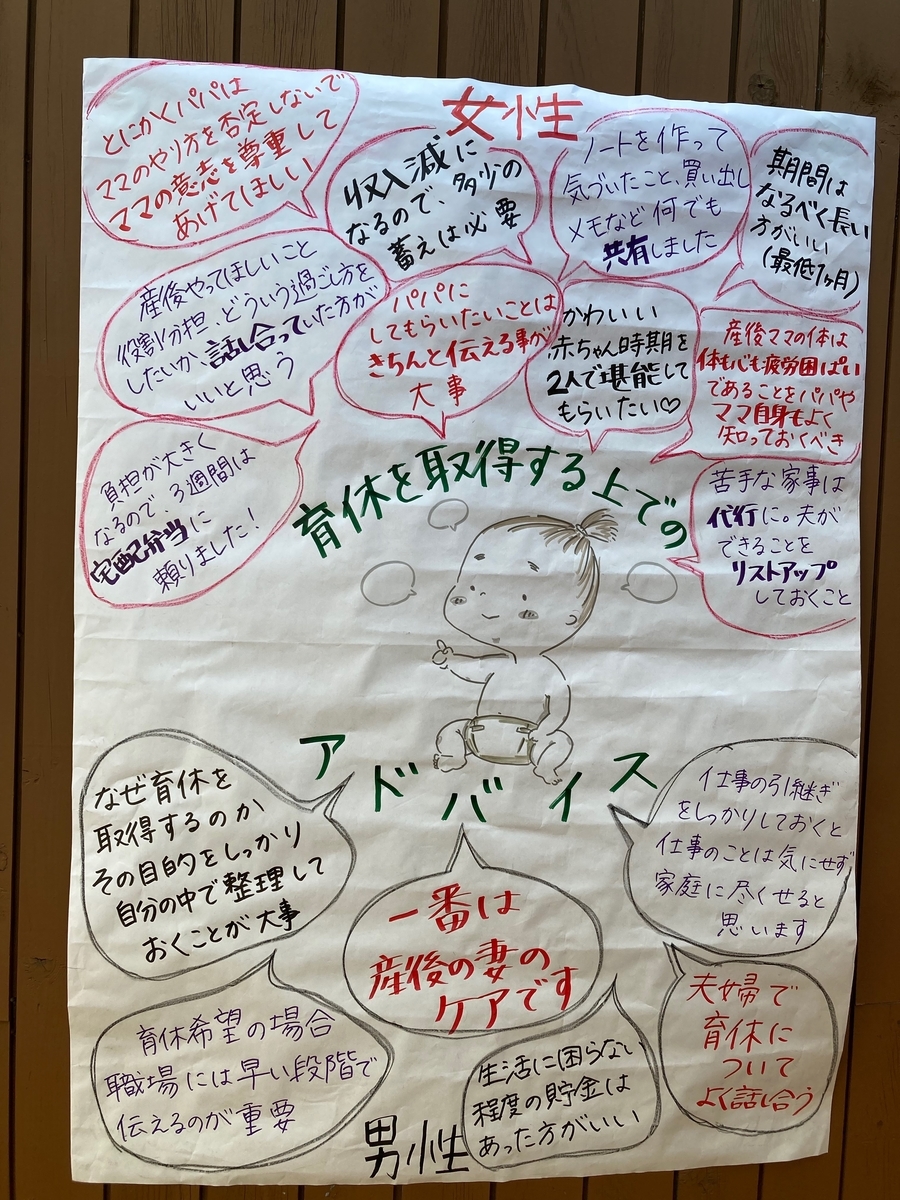 女性
とにかくパパは
ママのやり方を否定しないで
ママの意志を尊重して
あげてほしい
収入減に
なるので、多少の
蓄えは必要
ノートを作って
気づいたこと、買い出し
メモなど何でも
共有しました
期間は
なるべく長い
方がいい
(最低1ヶ月)
産後やってほしいこと
役割分担、どういう過ごし方を
したいか、話し合っていた方が
いいと思う
パパに
してもらいたいことは
きちんと伝える事が
大事
かわいい
赤ちゃん時期を
2人で堪能して
もらいたい♡
産後ママの体は
体も心も疲労困ぱい
であることをパパや
ママ自身もよく
知っておくべき
負担が大きく
なるので、3週間は
宅配弁当に
頼りました!
苦手な家事は
代行に。夫が
できることを
リストアップ
しておくこと
育休を取得する上での
アドバイス
なぜ育休を
取得するのか
その目的をしっかり
自分の中で整理して
おくことが大事
一番は
産後の妻の
ケアです
仕事の引継ぎ
をしっかりしておくと
仕事のことは気にせず
家庭に尽くせると
思います
育休希望の場合
職場には早い段階で
伝えるのが重要
生活に困らない
程度の貯金は
あった方がいい
夫婦で
育休に
ついて
よく話し合う
男性